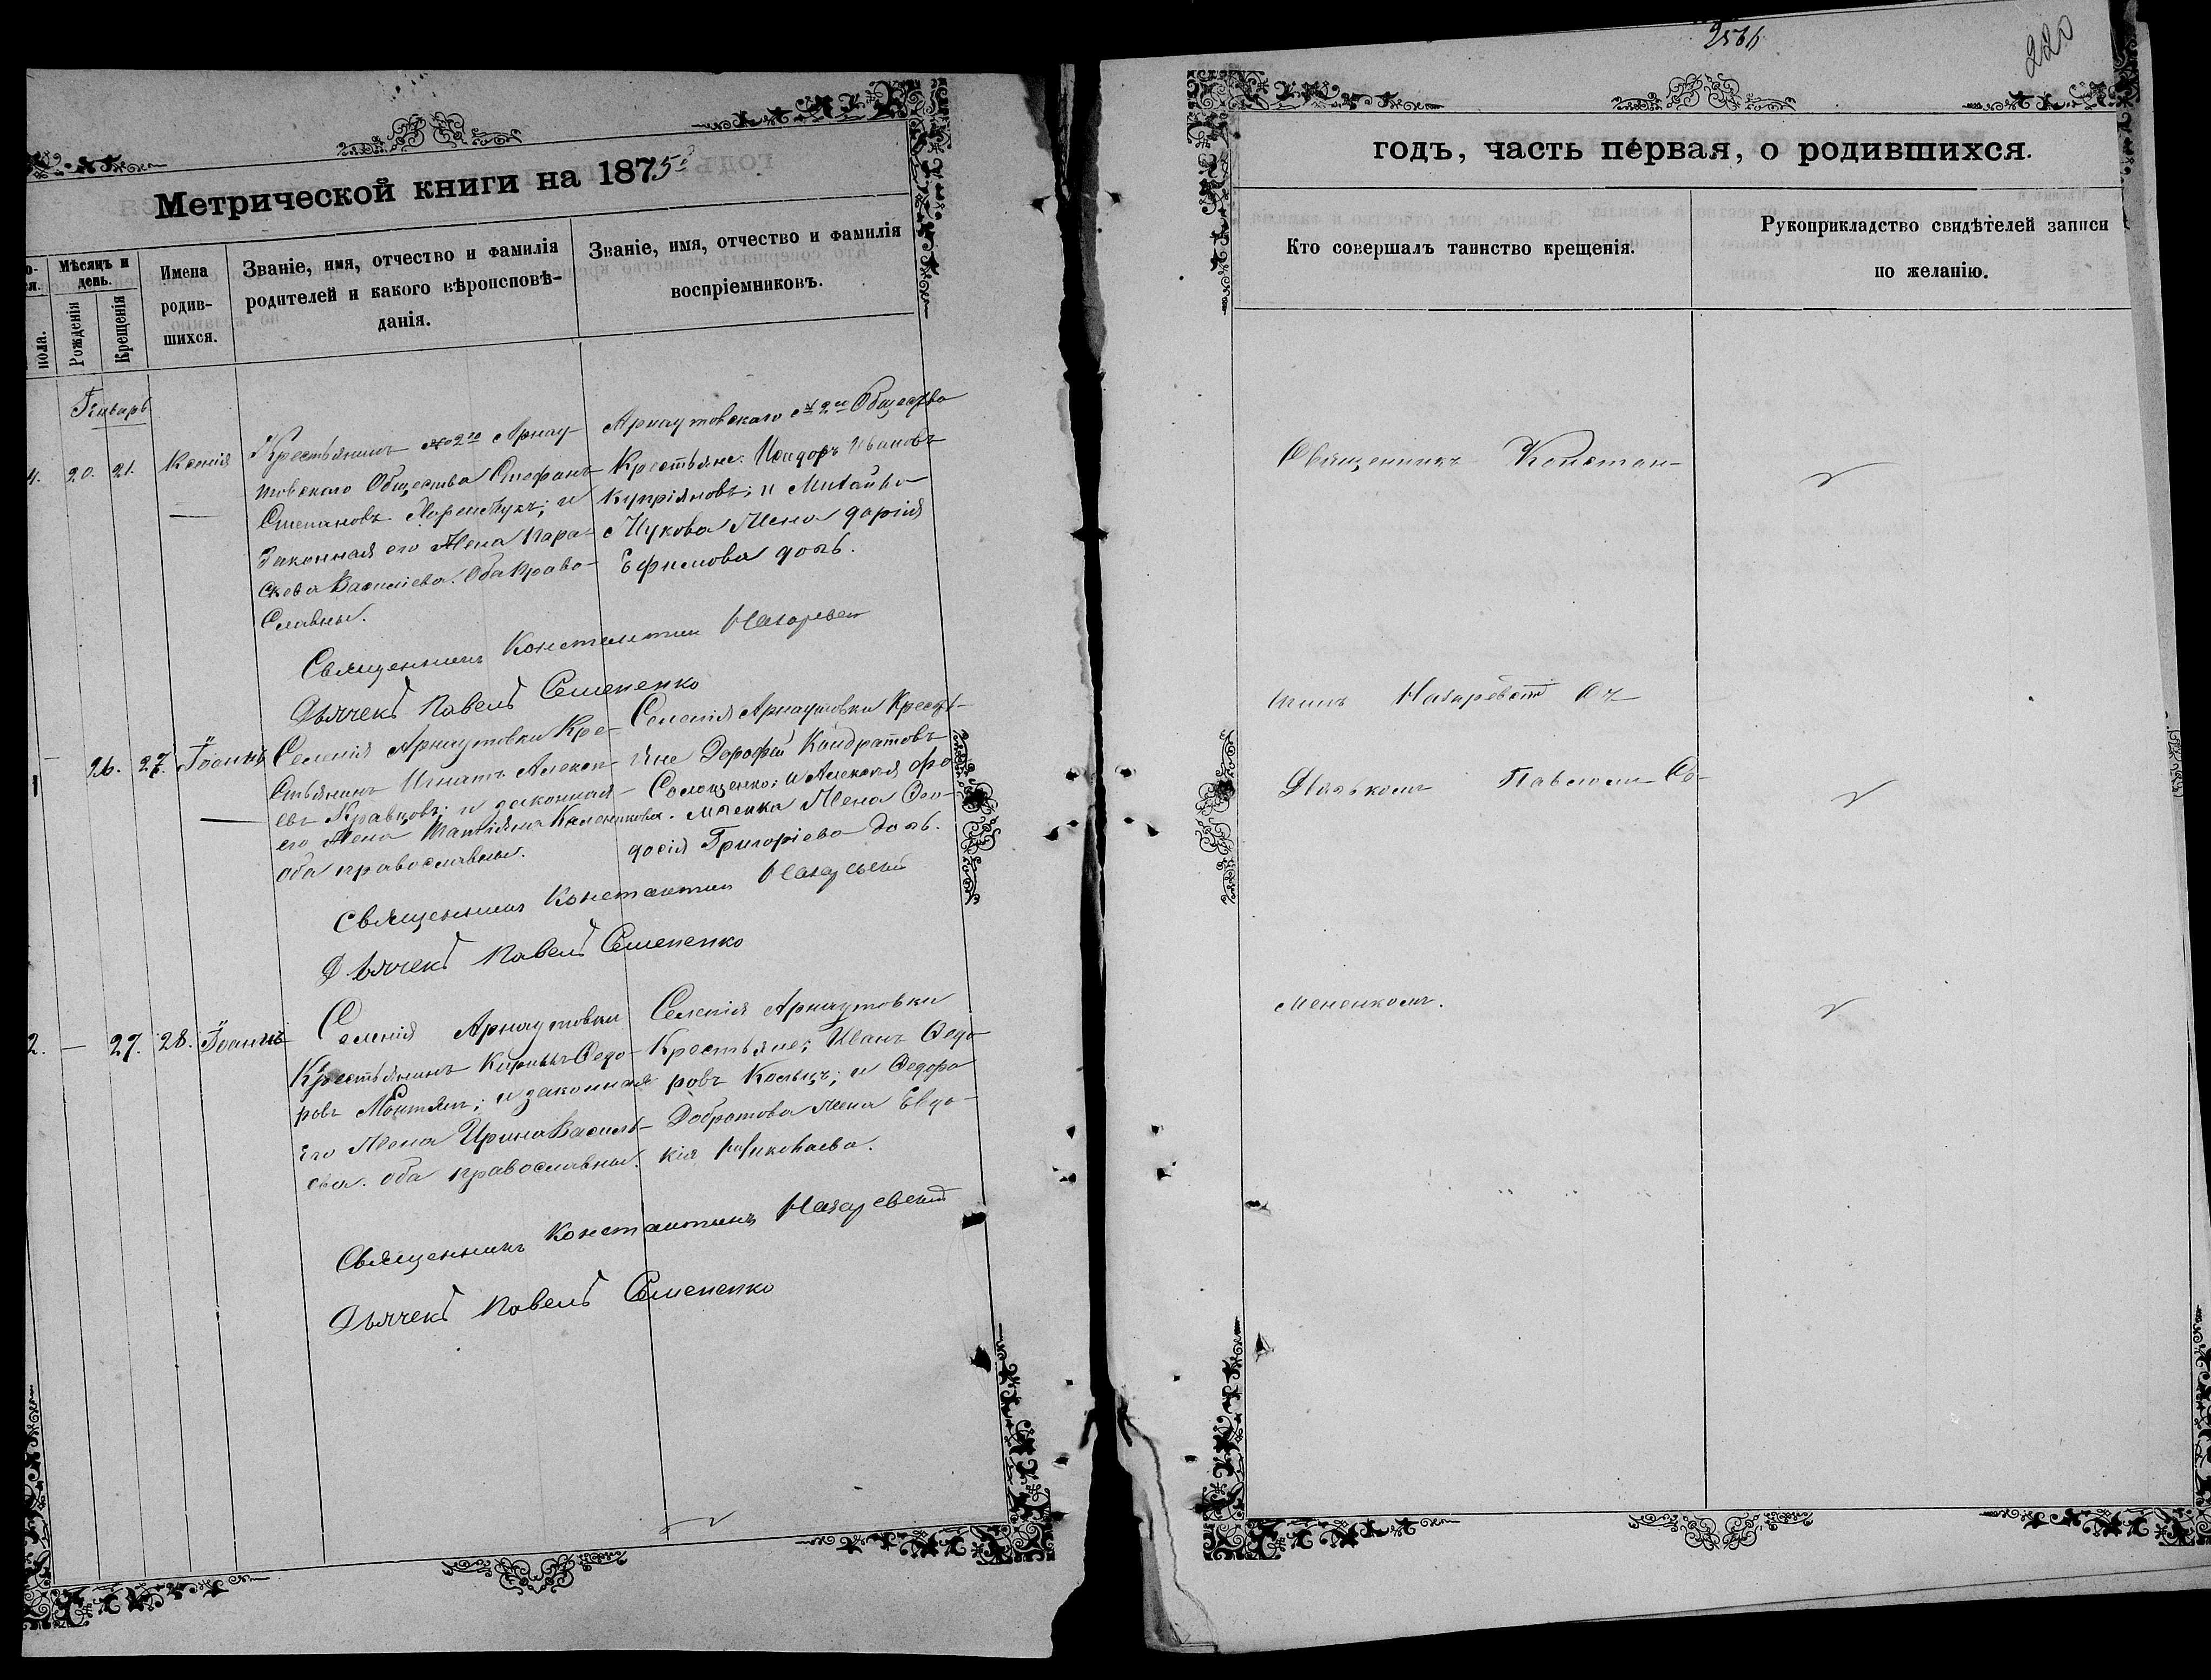 Метрической книги на 1875й
Мѣсяцъ и
день.
пола.
Рожденія
Крещенія
Имена
родив-
шихся.
Званіе, имя, отчество и фамилія
родителей и какого вѣроисповѣ-
данія.
Званіе, имя, отчество и фамилія
воспріемниковъ.
Январь
4. 20. 21. Ксенія
Крестьянинъ 2го Арнау-
товскаго Общества Стефанъ
Степановъ; и
Законная его Жена Пара-
скева Василіева. Оба Право-
Славны.
Арнаутовскаго 2го Общества
Крестьяне: Исидоръ Ивановъ
Купріяновъ; и Михайло
Чукова Жена Дарія
Ефимова дочь.
Священникъ Константин Назаревск
Дьячекъ Павелъ Семененко
1 — 26. 27. Іоаннъ
Селенія Арнаутовки Кре-
стьянинъ Игнатъ Алексѣ-
евъ Кравцовъ; и законная
его Жена Каленикова.
оба православны.
Селенія Арнаутовки Кресть-
яне Дорофей Кондратовъ
Солощенко; и Алексѣя Фо
мленка Жена Фео-
досія Григоріева дочь.
Священникъ Константин Назаревскій
Дьячекъ Павелъ Семененко
2. — 27. 28. Іоаннъ
Селенія Арнаутовки
Крестьянинъ Кирилъ Федо-
ровъ; и законная
Его Жена Ирина Василь-
ева. оба православны.
Селенія Арнаутовки
Крестьяне: Иванъ Федо-
ровъ Кольцъ; и Федора
Добратова Жена Евдо-
кія Николаева.
Священникъ Константинъ Назаревскій
Дьячекъ Павелъ Семененко
220
годъ, часть первая, о родившихся.
Кто совершалъ таинство крещенія.
Рукоприкладство свидѣтелей записи
по желанію.
Священникъ Констан-
тинъ Назаревскій Съ
Дьячкомъ Павломъ Се-
мененкомъ.